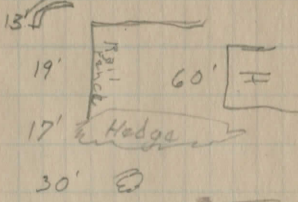 13'
19'
Rail Fence
60'
H
17'
Hedge
30'